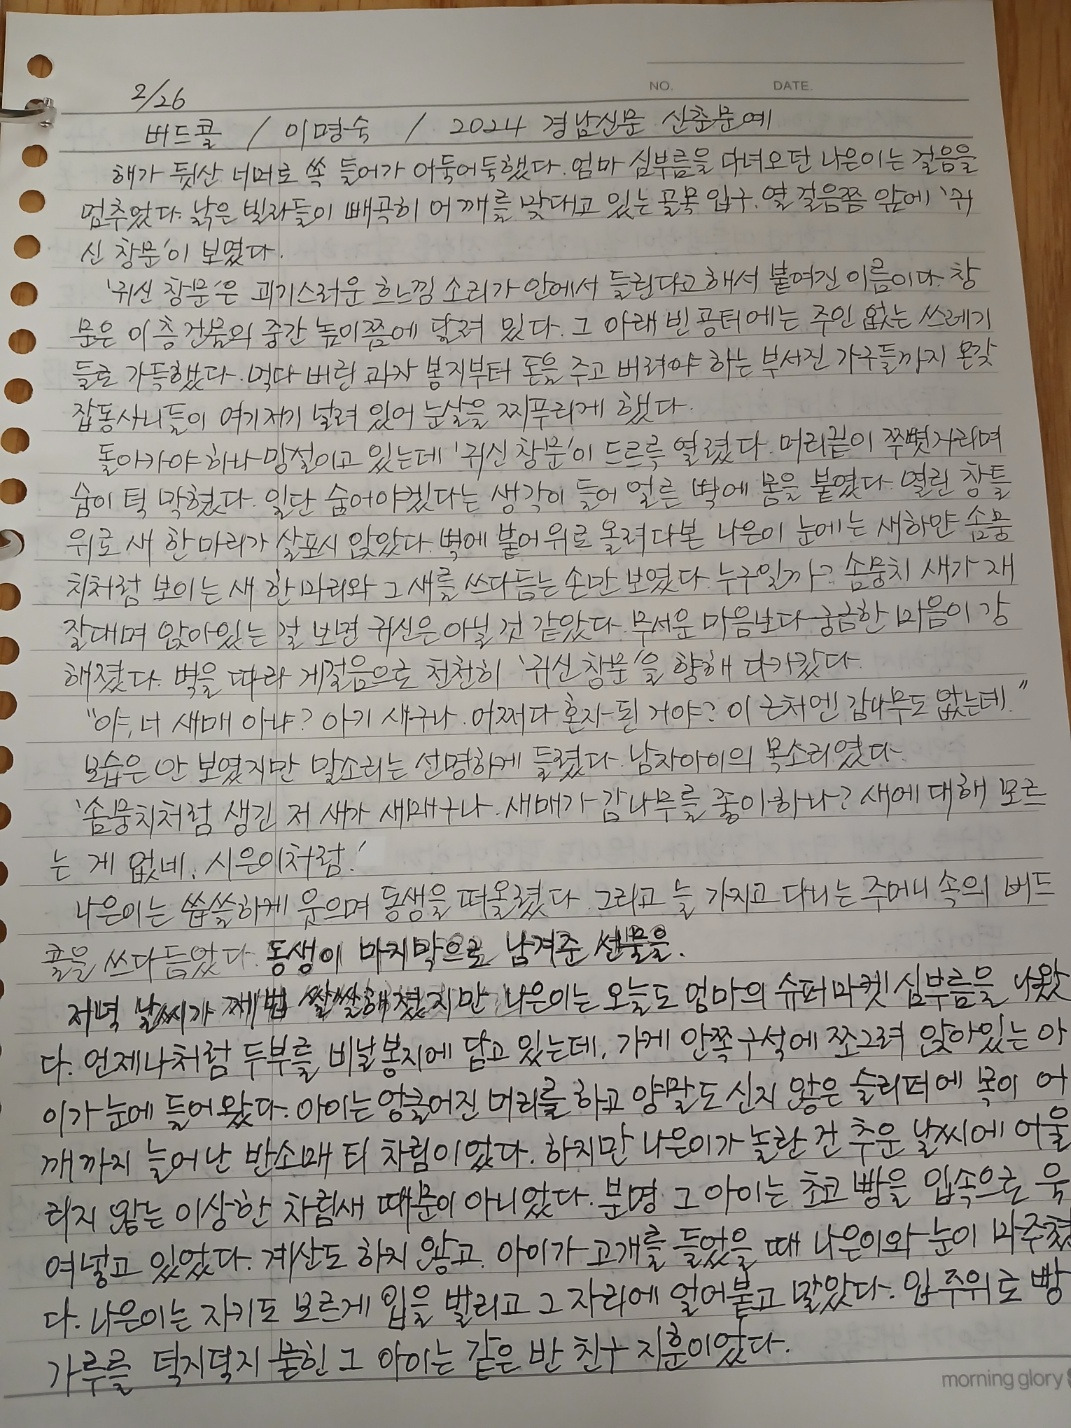 NO. DATE.
2/26
버드콜 / 이명숙 / 2024 경남신문 신춘문예
해가 뒷산 너머로 쏙 들어가 어둑어둑했다. 엄마 심부름을 다녀오던 나은이는 걸음을
멈추었다. 낡은 빌라들이 빼곡히 어깨를 맞대고 있는 골목 입구. 열 걸음쯤 앞에 '귀
신 창문'이 보였다.
'귀신 창문'은 괴기스러운 흐느낌 소리가 안에서 들린다고 해서 붙여진 이름이다. 창
문은 이층 건물의 중간 높이쯤에 달려 있다. 그 아래 빈 공터에는 주인 없는 쓰레기
들로 가득했다. 먹다 버린 과자 봉지부터 돈을 주고 버려야 하는 부서진 가구들까지 온갖
잡동사니들이 여기저기 널려 있어 눈살을 찌푸리게 했다.
돌아가야 하나 망설이고 있는데 '귀신 창문'이 드르륵 열렸다. 머리끝이 쭈뼛거리며
숨이 턱 막혔다. 일단 숨어야겠다는 생각이 들어 얼른 벽에 몸을 붙였다. 열린 창틀
위로 새 한 마리가 살포시 앉았다. 벽에 붙어 위로 올려다본 나은이 눈에는 새하얀 솜뭉
치처럼 보이는 새 한 마리와 그 새를 쓰다듬는 손만 보였다. 누구일까? 솜뭉치 새가 재
잘대며 앉아있는 걸 보면 귀신은 아닐 것 같았다. 무서운 마음보다 궁금한 마음이 강
해졌다. 벽을 따라 게걸음으로 천천히 '귀신 창문'을 향해 다가갔다.
"야, 너 새매 아냐? 아기 새구나. 어쩌다 혼자 된 거야? 이 근처엔 감나무도 없는데."
모습은 안 보였지만 말소리는 선명하게 들렸다. 남자아이의 목소리였다.
'솜뭉치처럼 생긴 저 새가 새매구나. 새매가 감나무를 좋아하나? 새에 대해 모르
는 게 없네. 시은이처럼.'
나은이는 씁쓸하게 웃으며 동생을 떠올렸다. 그리고 늘 가지고 다니는 주머니 속의 버드
콜을 쓰다듬었다. 동생이 마지막으로 남겨준 선물을.
저녁 날씨가 제법 쌀쌀해졌지만 나은이는 오늘도 엄마의 슈퍼마켓 심부름을 나왔
다. 언제나처럼 두부를 비닐봉지에 담고 있는데, 가게 안쪽 구석에 쪼그려 앉아있는 아
이가 눈에 들어왔다. 아이는 엉클어진 머리를 하고 양말도 신지 않은 슬리퍼에 목이 어
깨까지 늘어난 반소매 티 차림이었다. 하지만 나은이가 놀란 건 추운 날씨에 어울
리지 않는 이상한 차림새 때문이 아니었다. 분명 그 아이는 초코 빵을 입속으로 욱
여넣고 있었다. 계산도 하지 않고. 아이가 고개를 들었을 때 나은이와 눈이 마주쳤
다. 나은이는 자기도 모르게 입을 벌리고 그 자리에 얼어붙고 말았다. 입 주위로 빵
가루를 덕지덕지 묻힌 그 아이는 같은 반 친구 지훈이었다.
morning glory